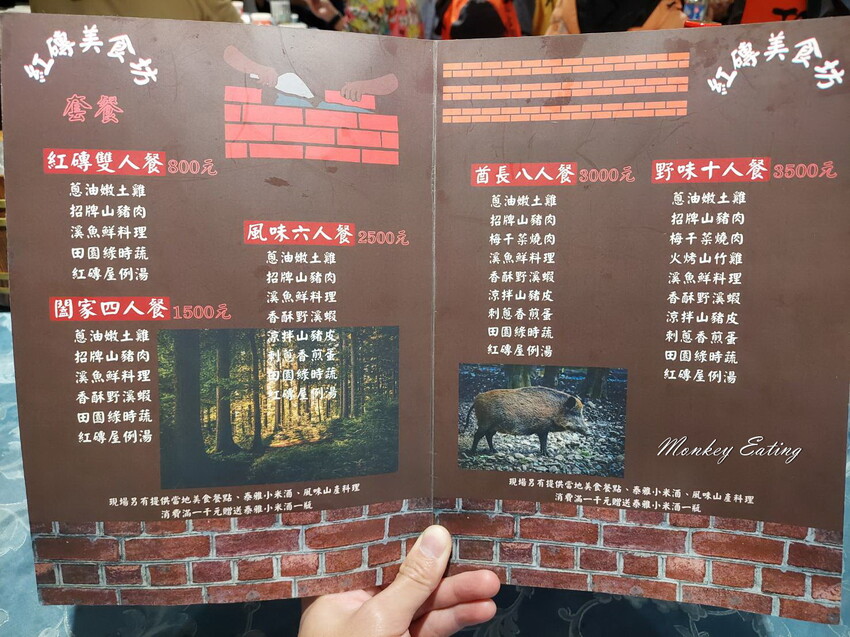 紅磚美食坊
套餐
紅磚雙人餐 800元
蔥油嫩土雞
招牌山豬肉
溪魚鮮料理
田園綠時蔬
紅磚屋例湯
闔家四人餐 1500元
蔥油嫩土雞
招牌山豬肉
溪魚鮮料理
香酥野溪蝦
田園綠時蔬
紅磚屋例湯
風味六人餐 2500元
蔥油嫩土雞
招牌山豬肉
溪魚鮮料理
香酥野溪蝦
涼拌山豬皮
刺蔥香煎蛋
田園綠時蔬
紅磚屋例湯
現場另有提供當地美食餐點、泰雅小米酒、風味山產料理
消費滿一千元贈送泰雅小米酒一瓶
紅磚美食坊
酋長八人餐 3000元
蔥油嫩土雞
招牌山豬肉
梅干菜燒肉
溪魚鮮料理
香酥野溪蝦
涼拌山豬皮
刺蔥香煎蛋
田園綠時蔬
紅磚屋例湯
野味十人餐 3500元
蔥油嫩土雞
招牌山豬肉
梅干菜燒肉
火烤山竹雞
溪魚鮮料理
香酥野溪蝦
涼拌山豬皮
刺蔥香煎蛋
田園綠時蔬
紅磚屋例湯
Monkey Eating
現場另有提供當地美食餐點、泰雅小米酒、風味山產料理
消費滿一千元贈送泰雅小米酒一瓶